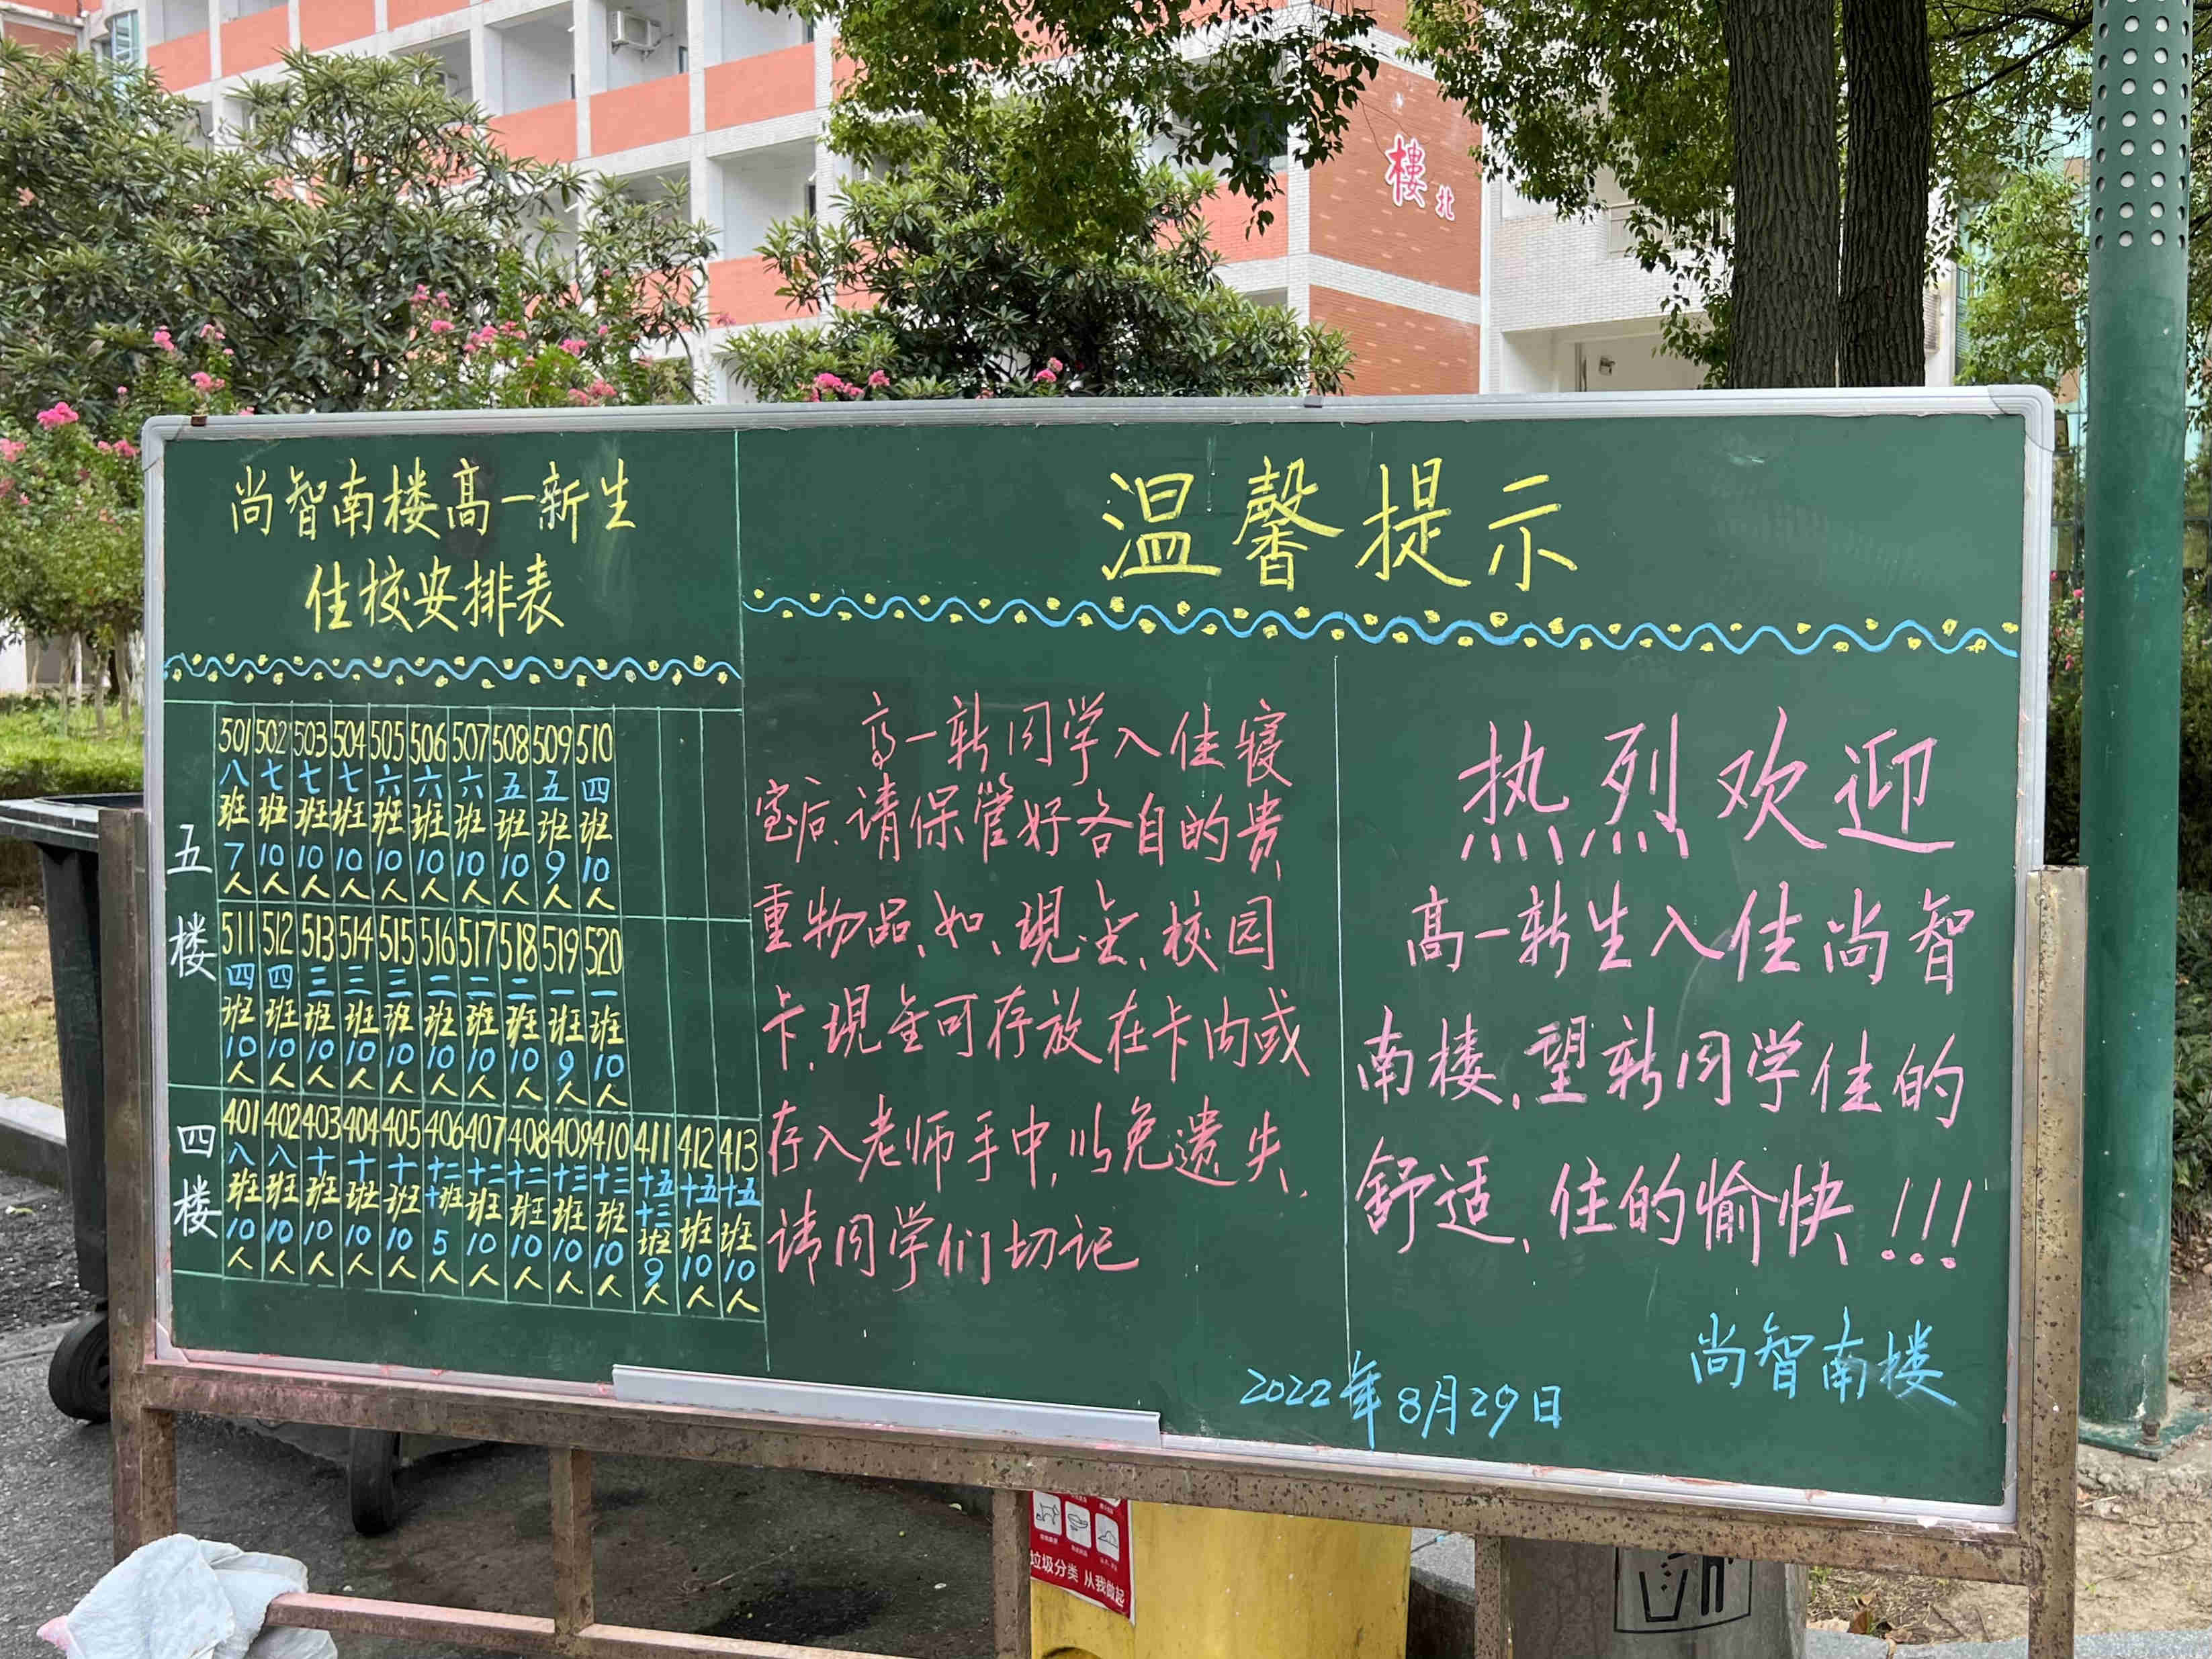 楼北
尚智南楼高一新生
住校安排表
五楼
501 502 503 504 505 506 507 508 509 510
八班 七班 七班 七班 六班 六班 六班 五班 五班 四班
7人 10人 10人 10人 10人 10人 10人 10人 9人 10人
511 512 513 514 515 516 517 518 519 520
四班 四班 三班 三班 三班 二班 二班 二班 一班 一班
10人 10人 10人 10人 10人 10人 10人 10人 9人 10人
四楼
401 402 403 404 405 406 407 408 409 410 411 412 413
八班 八班 十班 十班 十班 十二十班 十二班 十二班 十三班 十三班 十五十三班 十五班 十五班
10人 10人 10人 10人 10人 5人 10人 10人 10人 10人 9人 10人 10人
温馨提示
高一新同学入住寝
室后.请保管好各自的贵
重物品、如、現金、校园
卡.現金可存放在卡内或
存入老师手中,以免遗失,
请同学们切记
热烈欢迎
高一新生入住尚智
南楼,望新同学住的
舒适、住的愉快!!!
尚智南楼
2022年8月29日
垃圾分类 从我做起